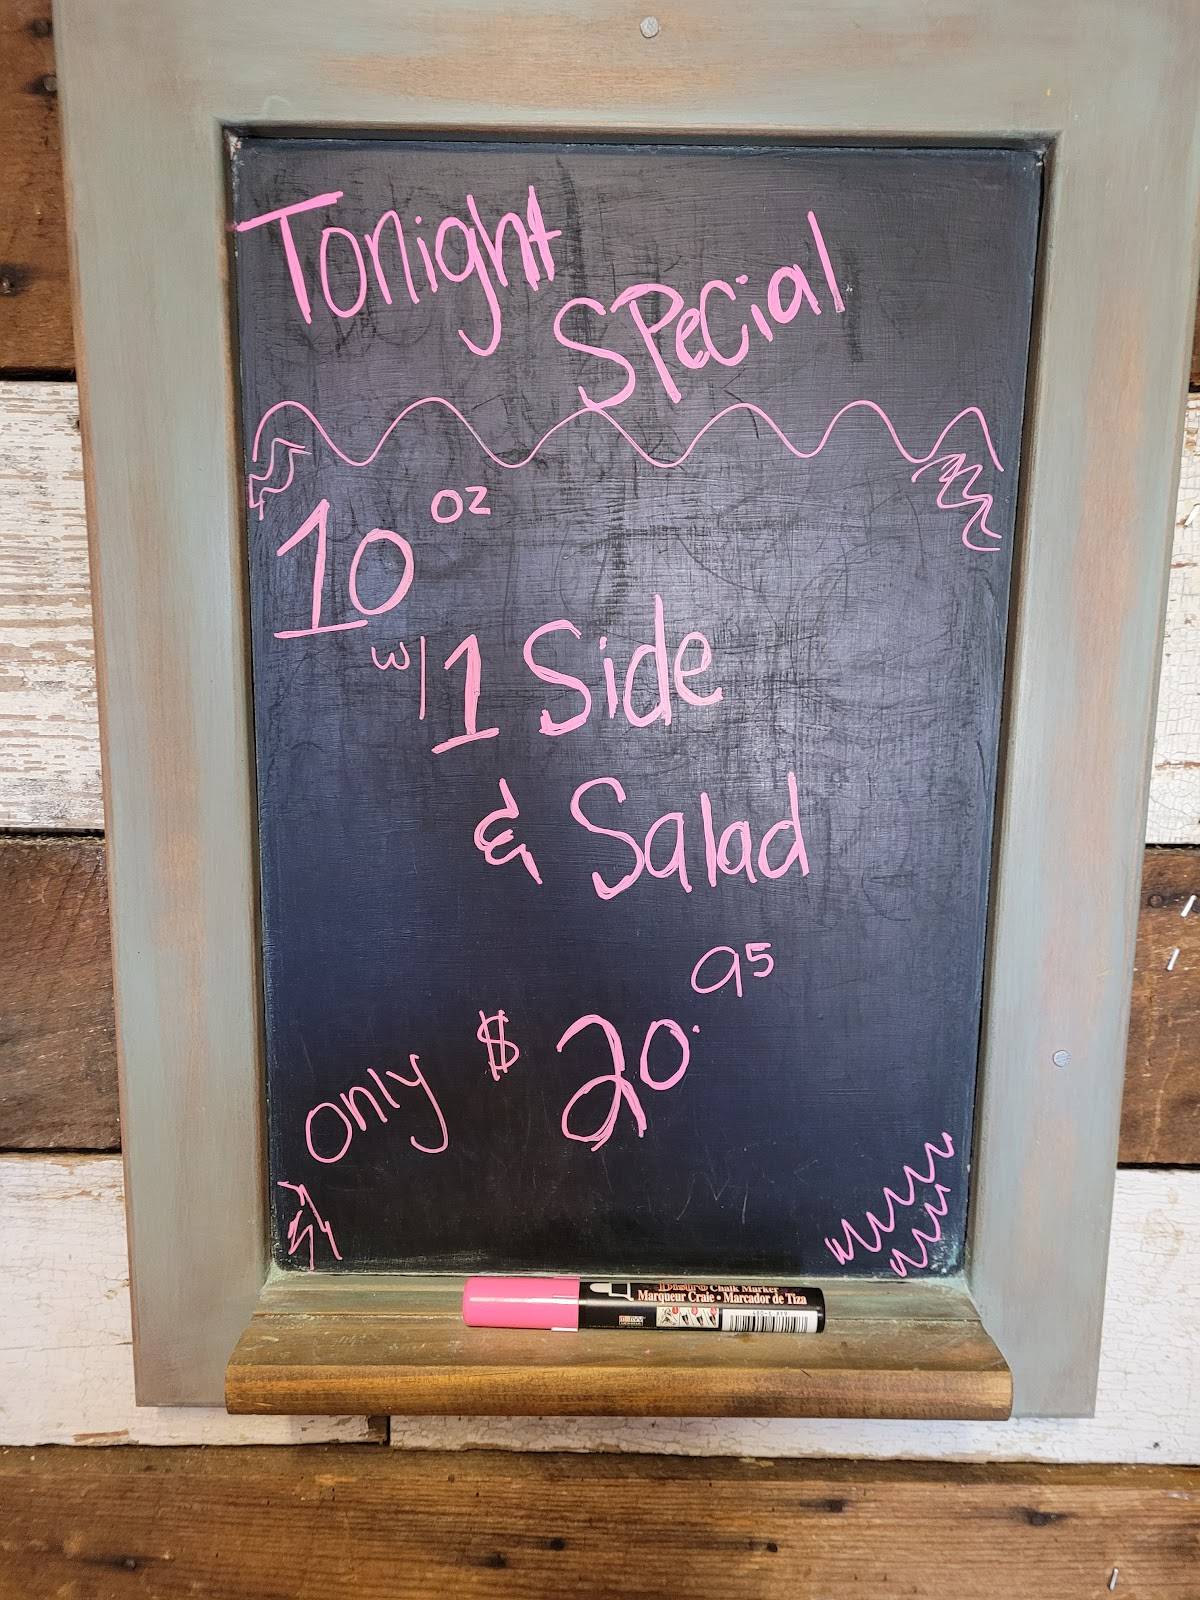 Tonight
Special
10 oz
w/ 1 Side
& Salad
only $ 20.95
Bistro Chalk Marker
Marqueur Craie • Marcador de Tiza